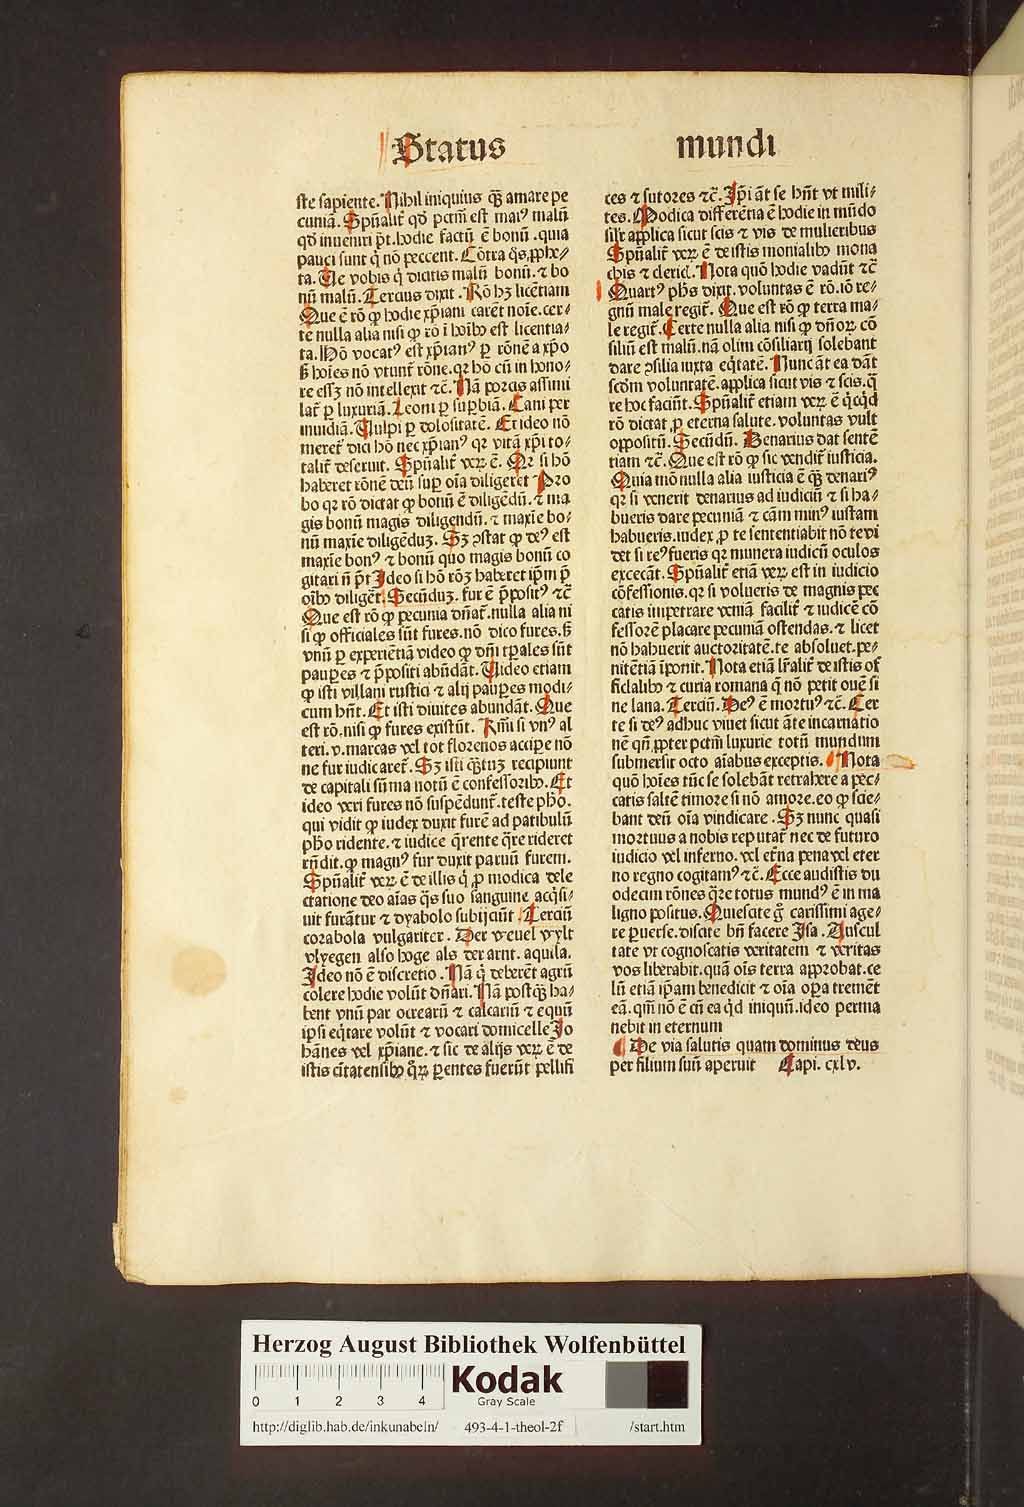 Status mundi
ste sapiente. Nihil iniquius qꝫ amare pe
cuniā. Spūalit̄ qd̓ pctm̄ est maiꝰ malū
qd̓ inueniri p̄t. hodie factū ē bonū. quia
pauci sunt q̄ nō peccent. Cōtra q̄s ꝓphe⸗
ta. Ue vobis q̄ dicitis malū bonū. ⁊ bo
nū malū. Tercius dixit. Rō hꝫ licētiam
Que ē rō ꝙ hodie xp̄iani carēt noīe. cer⸗
te nulla alia nisi ꝙ rō ī hoībꝰ est licentia⸗
ta. Hō vocatꝰ est xp̄ianꝰ ꝑ rōnē a xp̄o
ß hoīes nō vtunt̄ rōne. qꝛ hō cū in hono⸗
re essꝫ nō intellexit ⁊c̄. Nā porcis assimi
lat̄ ꝑ luxuriā. Leoni ꝑ suꝑbiā. Cani per
inuidiā. Uulpi ꝑ dolositatē. Et ideo nō
meret̄ dici hō nec xp̄ianꝰ qꝛ vitā xp̄i to⸗
talit̄ deseruit. Spūalit̄ veꝝ ē. Qꝛ si hō
haberet rōnē deū suꝑ oīa diligeret Pro
bo qꝛ rō dictat ꝙ bonū ē diligēdū. ⁊ ma
gis bonū magis diligendū. ⁊ maxīe bo⸗
nū maxīe diligēdūꝫ. Sꝫ ↄstat ꝙ deꝰ est
maxīe bonꝰ ⁊ bonū quo magis bonū co
gitari n̄ p̄t Ideo si hō rōꝫ haberet ip̄m p̄
oībꝰ diligēt̄. Secūduꝫ. fur ē p̄positꝰ ⁊c̄
Que est rō ꝙ pecunia dn̄at̄. nulla alia ni
si ꝙ officiales sūt fures. nō dico fures. ß
vnū ꝑ experiētiā video ꝙ dn̄i tꝑales sūt
pauꝑes ⁊ p̄positi abūdāt. Uideo etiam
ꝙ isti villani rustici ⁊ alij pauꝑes modi⸗
cum hn̄t. Et isti diuites abundāt. Que
est rō. nisi ꝙ fures existūt. Rm̄i si vnꝰ al
teri. v. marcas vel tot florenos acciꝑe nō
ne fur iudicaret̄. Sꝫ isti qꝫtuꝫ recipiunt
de capitali sūma notū ē confessoribꝰ. Et
ideo veri fures nō suspēdunt̄. teste pħo.
qui vidit ꝙ iudex duxit furē ad patibulū
pħo ridente. ⁊ iudice q̄rente q̄re rideret
rn̄dit. ꝙ magnꝰ fur duxit paruū furem.
Spūalit̄ veꝝ ē de illis q̄ ꝓ modica dele
ctatione deo aīas q̄s suo sanguine acq̄si⸗
uit furātur ⁊ dyabolo subijciūt Terciū
corabola vulgariter. Der weuel wylt
vlyegen also hoge als der arnt. aquila.
Ideo nō ē discretio. Nā q̄ deberēt agrū
colere hodie volūt dn̄ari. Nā postqꝫ ha⸗
bent vnū par ocrearū ⁊ calcariū ⁊ equū
ip̄si eq̄tare volūt ⁊ vocari domicelle Jo
hānes vel xp̄iane. ⁊ sic de alijs veꝝ ē de
istis cītatensibꝰ q̄ꝝ ꝑentes fuerūt pellifi
ces ⁊ sutores ⁊c̄. Ip̄i āt se hn̄t vt mili⸗
tes. Modica differētia ē hodie in mūdo
sil̄r applica sicut scis ⁊ vis de mulieribus
Spūalit̄ veꝝ ē de istis monialibꝰ mona
chis ⁊ cleric̄. Nota quō hodie vadūt ⁊c̄
Quartꝰ pħs dixit. voluntas ē rō. iō re⸗
gnū male regit̄. Que est rō ꝙ terra ma⸗
le regit̄. Certe nulla alia nisi ꝙ dn̄oꝝ cō
siliū est malū. nā olim cōsiliarij solebant
dare ↄsilia iuxta eq̄tatē. Nunc āt ea dāt
scdm̄ voluntatē. applica sicut vis ⁊ scis. q̄
re hoc faciūt. Spūalit̄ etiam veꝝ ē q̄cq̄d
rō dictat ꝓ eterna salute. voluntas vult
oppositū. Secūdū. Denarius dat sentē
tiam ⁊c̄. Que est rō ꝙ sic vendit̄ iusticia.
Quia mō nulla alia iusticia ē qꝫ denariꝰ
qꝛ si venerit denarius ad iudiciū ⁊ si ha⸗
bueris dare pecuniā ⁊ cām minꝰ iustam
habueris. iudex ꝓ te sententiabit nō te vi
det si reꝰ fueris qꝛ munera iudicū oculos
excecāt. Spūalit̄ etiā veꝝ est in iudicio
cōfessionis. qꝛ si volueris de magnis pec
catis impetrare veniā facilit̄ ⁊ iudicē cō
fessorē placare pecuniā ostendas. ⁊ licet
nō habuerit auctoritatē. te absoluet. pe⸗
nitētiā īponit. Nota etiā lr̄alit̄ de istis of
ficialibꝰ ⁊ curia romana q̄ nō petit ouē si
ne lana. Terciū. Deꝰ ē mortuꝰ ⁊c̄. Cer
te si deꝰ adhuc viuet sicut āte incarnatio
nē qn̄ ꝓpter pctm̄ luxurie totū mundum
submersit octo aīabus exceptis. Nota
quō hoīes tūc se solebāt retrahere a pec⸗
catis saltē timore si nō amore. eo ꝙ scie⸗
bant deū oīa vindicare. Sꝫ nunc quasi
mortuus a nobis reputat̄ nec de futuro
iudicio vel inferno. vel et̄na pena vel eter
no regno cogitamꝰ ⁊c̄. Ecce audistis du
odecim rōnes q̄re totus mundꝰ ē in ma
ligno positus. Quiescite g̊ carissimi age⸗
re ꝑuerse. discite bn̄ facere Isa. Auscul
tate vt cognoscatis veritatem ⁊ veritas
vos liberabit. quā oīs terra approbat. ce
lū etiā ip̄am benedicit ⁊ oīa oꝑa tremēt
eā. qm̄ nō ē cū ea q̄d iniquū. ideo perma
nebit in eternum
De via salutis quam dominus deus
per filium suū aperuit Capi. cxlv.
Herzog August Bibliothek Wolfenbüttel
0 1 2 3 4
Kodak
Gray Scale
http://diglib.hab.de/inkunabeln/ 493-4-1-theol-2f /start.htm